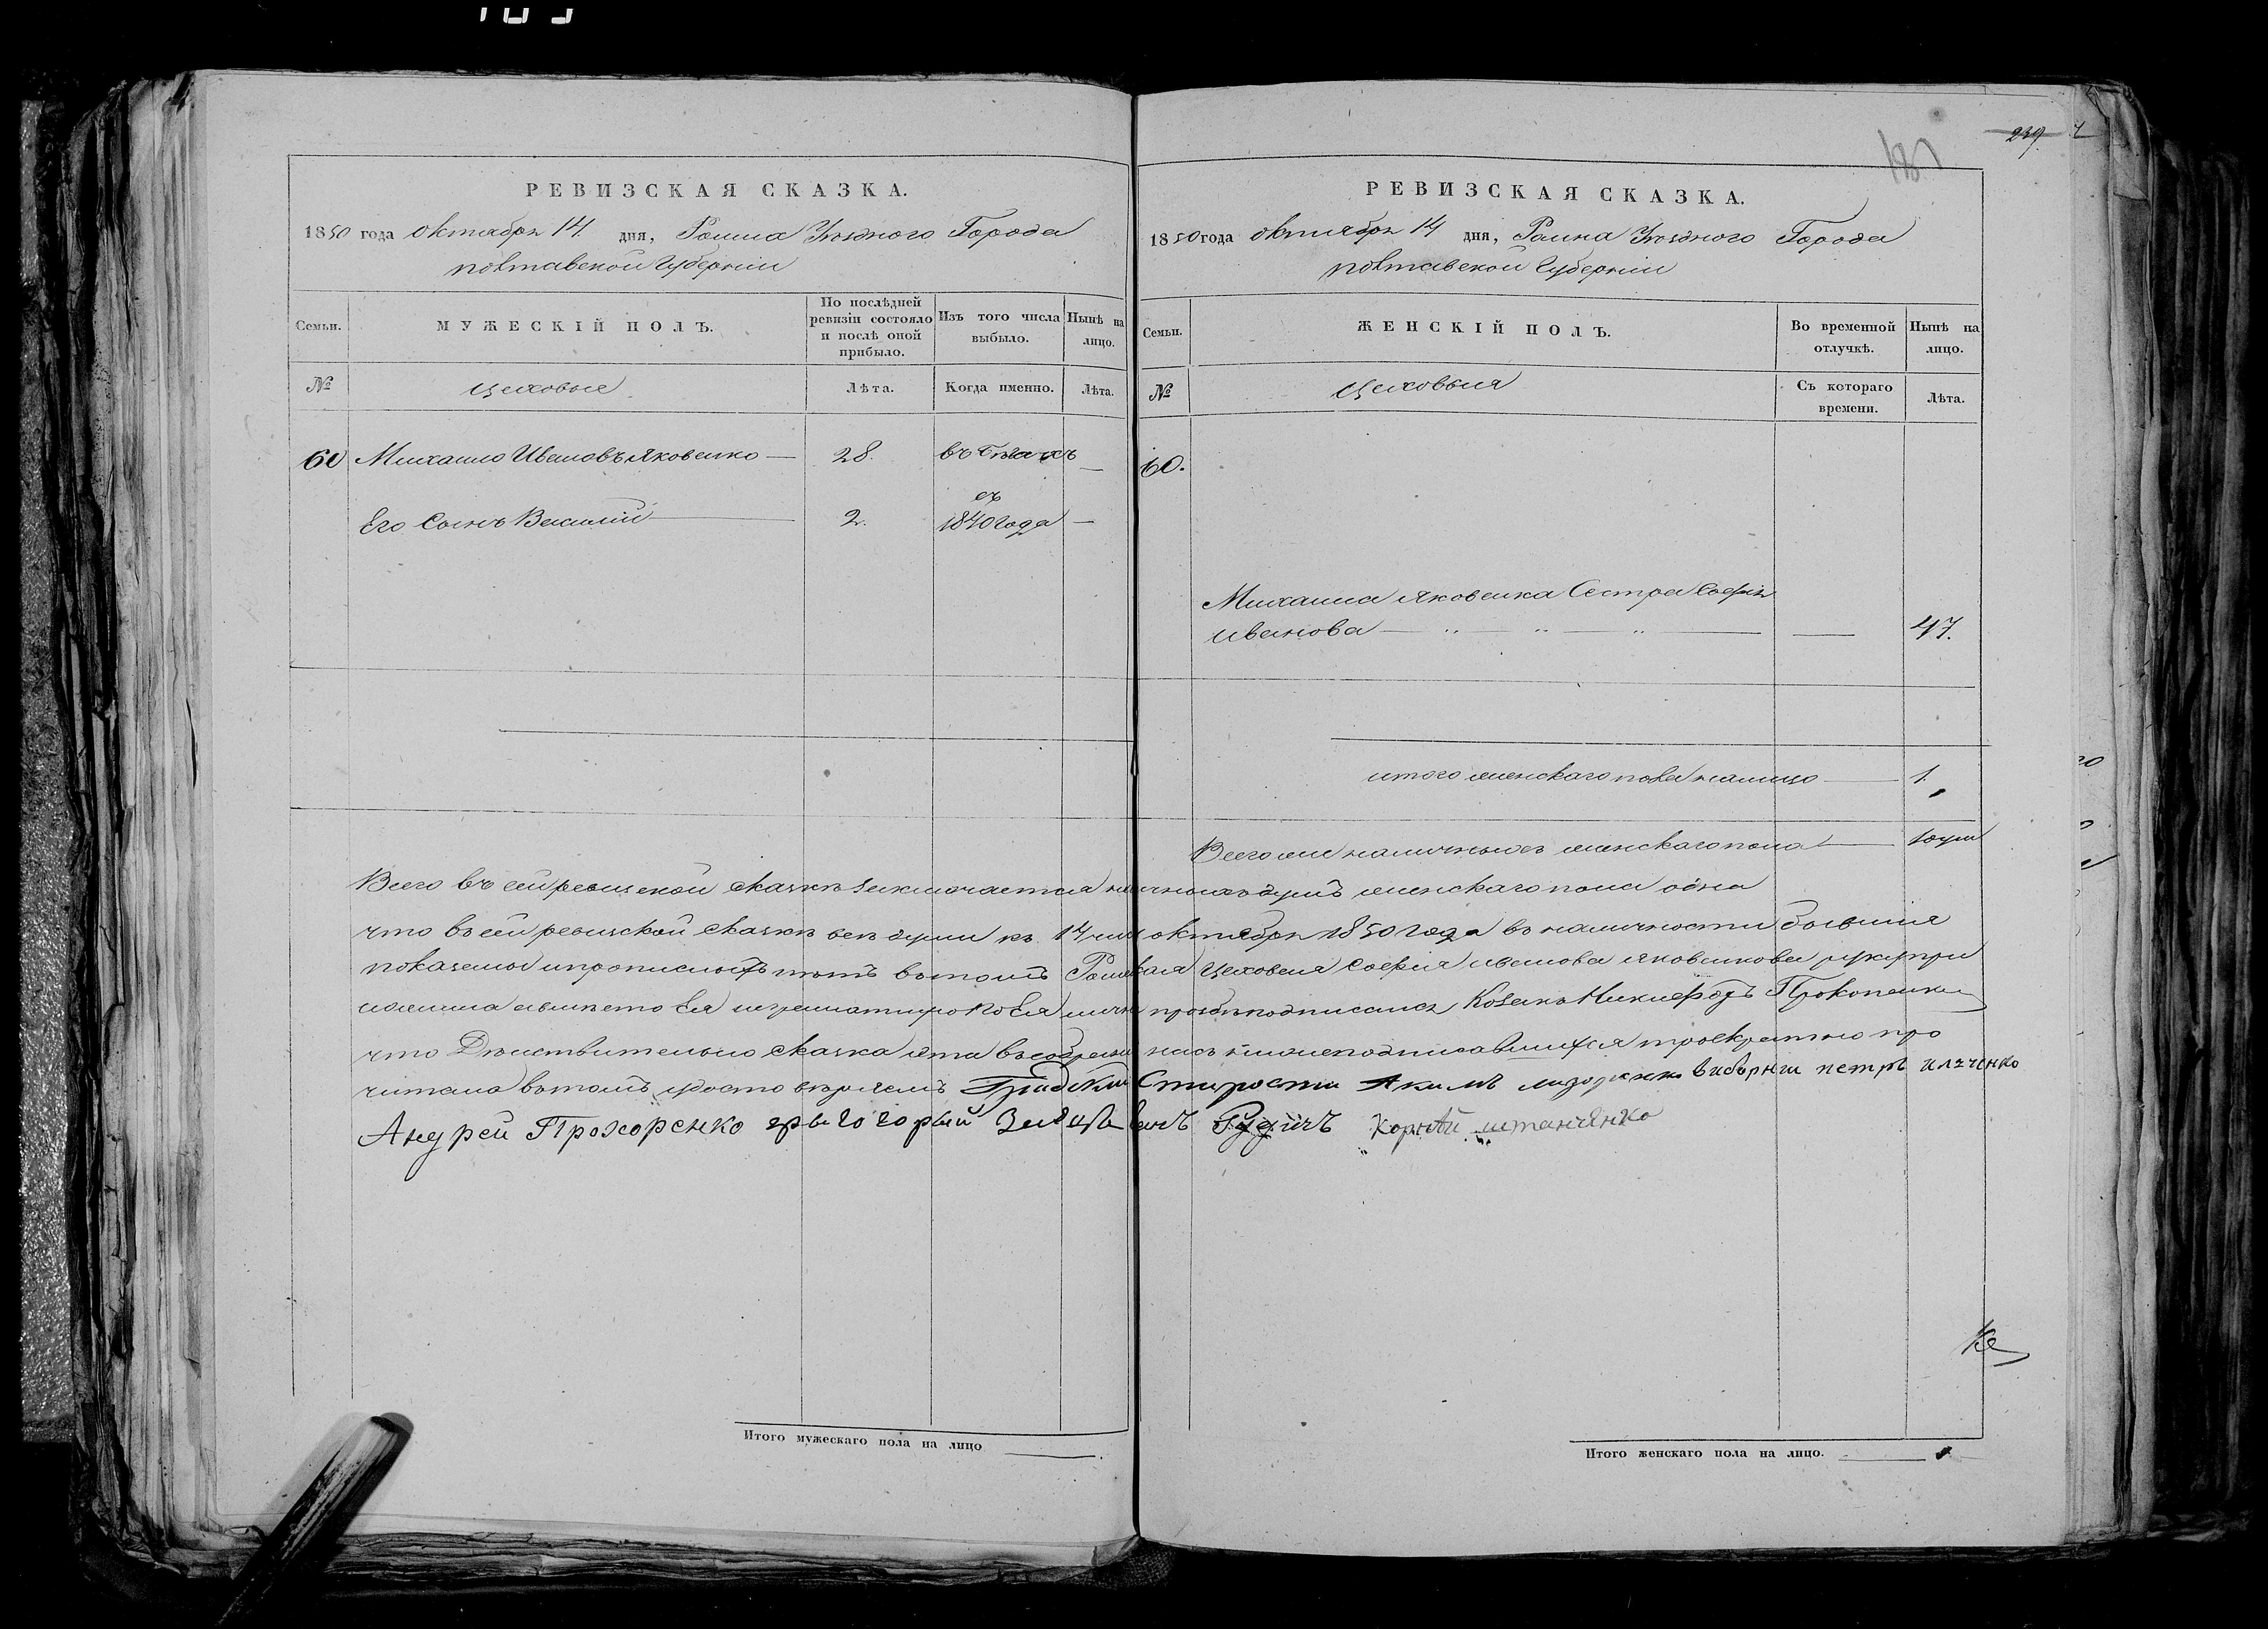 239
187
РЕВИЗСКАЯ СКАЗКА.
1850 года октября 14 дня, Ромна Уѣзднаго Города
полтавской Губерніи
Семьи.
МУЖЕСКІЙ ПОЛЪ.
По послѣдней ревизіи состояло и послѣ оной прибыло.
Изъ того числа выбыло.
Нынѣ на лицо.
№
цеховые
Лѣта.
Когда именно.
Лѣта.
60 Михайло Ивановъ Яковенко — 28. въ бѣгахъ —
съ
Его Сынъ Василій — 2. 1840 года —
РЕВИЗСКАЯ СКАЗКА.
1850 года октября 14 дня, Ромна Уѣзднаго Города
полтавской Губерніи
Семьи.
ЖЕНСКІЙ ПОЛЪ.
Во временной отлучкѣ.
Нынѣ на лицо.
№
Цеховыя
Съ котораго времени.
Лѣта.
60.
Михаила Яковенка Сестра Софія
иванова — — 47.
итого женскаго пола налицо — 1.
Всего же наличныхъ женскаго пола — 1 душа
Всего въ сей ревизской сказкѣ заключается наличныхъ душъ женскаго пола одна
что въ сей ревизской сказкѣ всѣ души къ 14 числу октября 1850 года въ наличности бывшія
показаны и прописныхъ нѣтъ въ томъ Роменская Цеховая Софія иванова яковенкова руку при
ложила а вмѣсто Ея неграмотную по Ея личной прозбѣ подписался Козакъ Никифоръ Прокопенко
что Дѣйствительно сказка эта въ собраніи насъ нижеподписавшихся троекратно про
читана въ томъ удостовѣряемъ Градскій Староста Якимъ виборній петръ иляченко
Андрей Прохоренко грыгорый Рудичъ корнѣй штанченко
Итого мужескаго пола на лицо —.
Итого женскаго пола на лицо. — 1